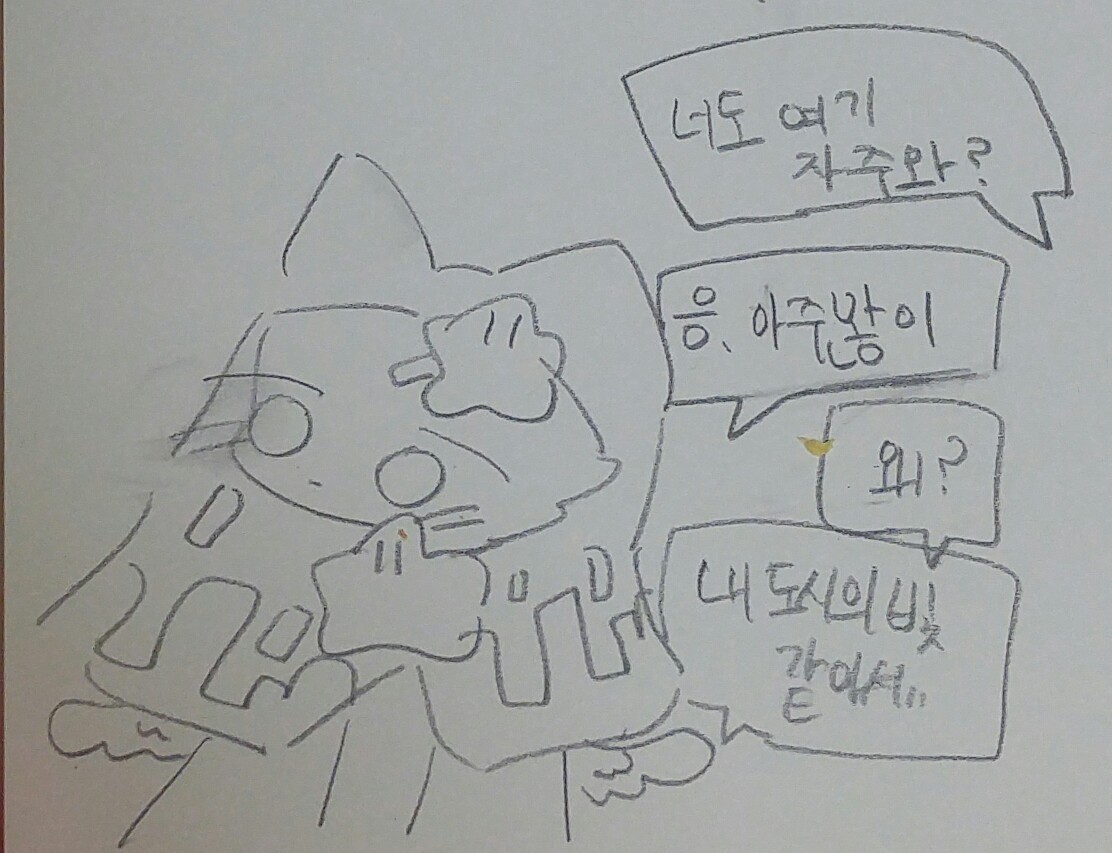 너도 여기
자주와?
응. 아주많이
왜?
내 도시의 빛
같아서..